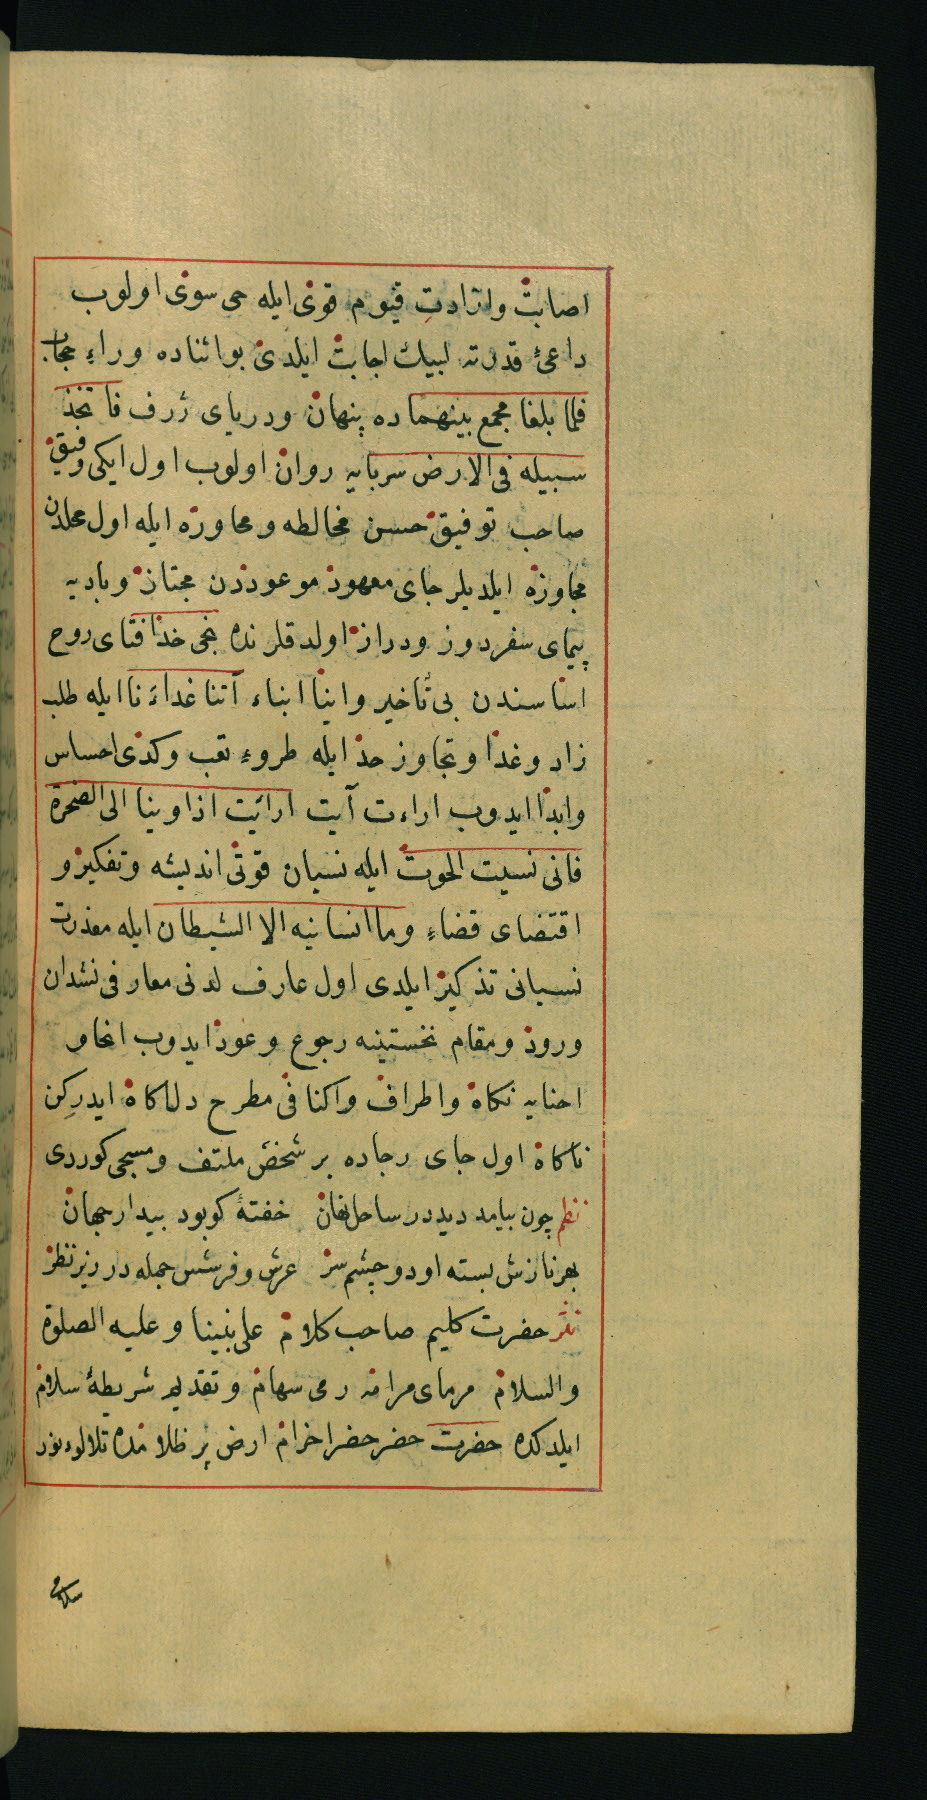 اصابت وارادت قیوم قوی ایله حی سوی اولوب
داعئ قدرته لبیك اجابت ایلدی بو اثناده وراء حجاب
فلما بلغا مجمع بینهما ده پنهان ودریای ژرف فاتخذ
سبیله فی الارض سربایه روان اولوب اول ایکی رفیق
صاحب توفیق حسن مخالطه و محاوره ایله اول محلدن
مجاوزه ایلدیلر جای معهود موعوددن مجتاز وبادیه
پیمای سفر دور ودراز اولدقلرنده فتای روح
اسا سندن بی تأخیر واینا ابناء آتنا غداءنا ایله طلب
زاد وغذا وتجاوز حد ایله طروء تعب وکدی احساس
وابدا ایدوب اراءت آیت ارأیت اذ اوینا الی الصخرة
فانی نسیت الحوت ایله نسیان قوتی اندیشه وتفکیر و
اقتضای قضاء وما انسانیه الا الشیطان ایله معذرت
نسیانی تذکیر ایلدی اول عارف لدنی معارفی نشدان
ورود ومقام نخستینه رجوع وعود ایدوب انحا و
احنایه نکاه واطراف واکنافی مطرح دلاکاه ایدرکن
ناکاه اول جای رجاده بر شخص ملتف ومسجی کوردی
نظم چون بیامد دید در ساحل نهان خفتهٔ کو بود بیدار جهان
بهر نازش بسته او دو چشم سر عرش وفرشش جمله در زیر نظر
نثر حضرت کلیم صاحب کلام علی نبینا وعلیه الصلوة
والسلام مرمای مرامه رمی سهام وتقدیم شریطهٔ سلام
ایلدکده حضرت خضر خضرا خرام ارض پر ظلامده تلالوء نور
سلامی